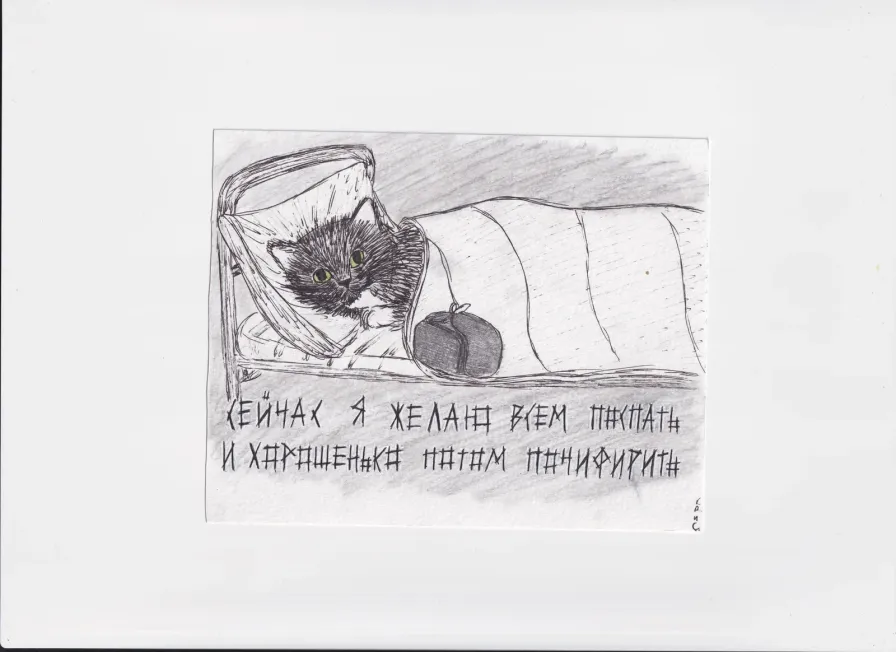 СЕЙЧАС Я ЖЕЛАЮ ВСЕМ ПОСПАТЬ
И ХОРОШЕНЬКО ПОТОМ ПОЧИФИРИТЬ